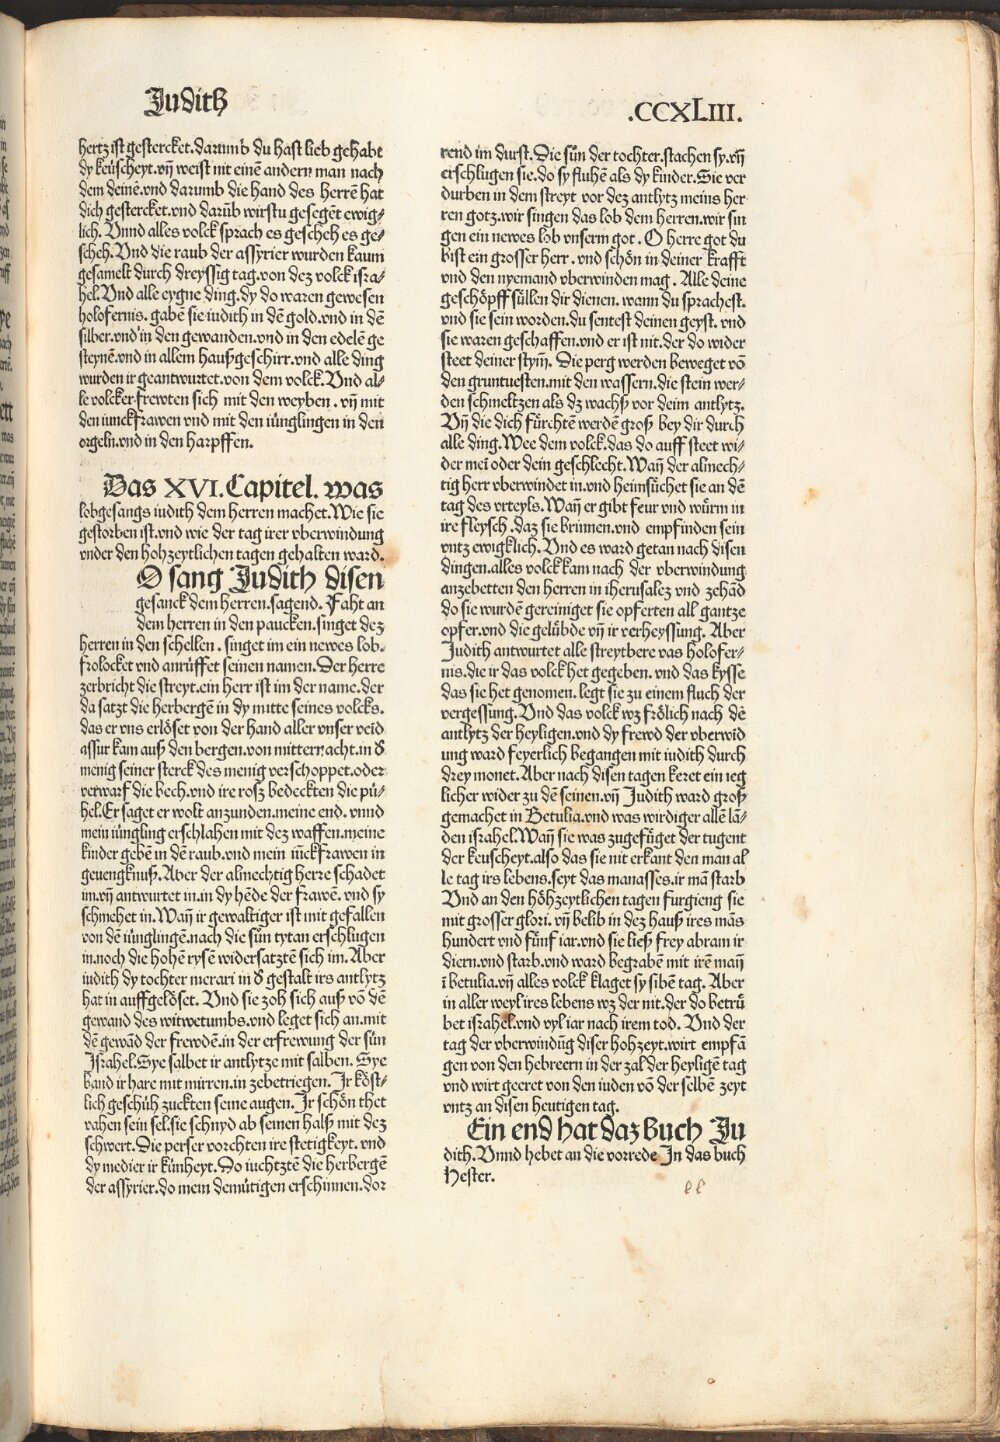 Judith
.CCXLIII.
hertz ist gestercket.darumb du hast lieb gehabt
dy keüscheyt.vñ weist nit einē andern man nach
dem deinē.vnd darumb die hand des herrē hat
dich gestercket.vnd darūb wirstu gesegēt ewig⸗
lich. Vnnd alles volck sprach es gescheh es ge⸗
scheh.Vnd die raub der assyrier wurden kaum
gesamelt durch dreyssig tag.von dez volck isra⸗
hel.Vnd alle eygne ding.dy do waren gewesen
holofernis. gabē sie iudith in dē gold.vnd in dē
silber.vnd in den gewanden.vnd in den edelē ge
steynē.vnd in allem haußgeschirr.vnd alle ding
wurden ir geantwurtet.von dem volck.Vnd al⸗
le volcker.frewten sich mit den weyben . vñ mit
den iunckfrawen vnd mit den iünglingen in den
orgeln.vnd in den harpffen.
Das XVI.Capitel. was
lobgesangs iudith dem herren machet.Wie sie
gestorben ist.vnd wie der tag irer vberwindung
vnder den hohzeytlichen tagen gehalten ward.
O sang Judith disen
gesanck dem herren.sagend. Faht an
dem herren in den paucken.singet dez
herren in den schellen . singet im ein newes lob.
frolocket vnd anrüffet seinen namen.Der herre
zerbricht die streyt.ein herr ist im der name.der
da satzt die herbergē in dy mitte seines volcks.
das er vns erlöset von der hand aller vnser veīd
assur kam auß den bergen.von mitternacht.in d̕
menig seiner sterck des menig verschoppet.oder
verwarf die bech.vnd ire rosz bedeckten die pü⸗
hel.Er saget er wolt anzunden.meine end. vnnd
mein iüngling erschlahen mit dez waffen.meine
kinder gebē in dē raub.vnd mein iūckfrawen in
geuengknuß.Aber der almechtig herre schadet
im.vñ antwurtet in.in dy hēde der frawē. vnd sy
schmehet in.Wañ ir gewaltiger ist nit gefallen
von dē iünglingē.nach die sün tytan erschlügen
in.noch die hohē rysē widersatztē sich im. Aber
iudith dy tochter merari in d̕ gestalt irs antlytz
hat in auffgelöset. Vnd sie zoh sich auß vō dē
gewand des witwetumbs.vnd leget sich an.mit
dē gewād der frewdē.in der erfrewung der sün
Israhel.Sye salbet ir antlytze mit salben. Sye
band ir hare mit mirren.in zebetriegen. Ir köst⸗
lich geschüh zuckten seine augen. Ir schön thet
vahen sein sel.sie schnyd ab seinen halß mit dez
schwert.Die perser vorchten ire stetigkeyt. vnd
dy medier ir künheyt.Do iuchtztē die herbergē
der assyrier.do mein demütigen erschinnen.dor
rend im durst.Die sün der tochter.stachen sy.vñ
erschlugen sie.do sy fluhē als dy kinder.Sie ver
durben in dem streyt vor dez antlytz meins her
ren gotz.wir singen das lob dem herren.wir sin
gen ein newes lob vnserm got . O herre got du
bist ein grosser herr . vnd schön in deiner krafft
vnd den nyemand vberwinden mag . Alle deine
geschöpff süllen dir dienen. wann du sprachest.
vnd sie sein worden.du sentest deinen geyst. vnd
sie waren geschaffen.vnd er ist nit.der do wider
steet deiner stym̄. Die perg werden beweget vō
den gruntuesten.mit den wassern.die stein wer⸗
den schmeltzen als dz wachß vor deim antlytz.
Vñ die dich fürchtē werdē groß bey dir durch
alle ding.Wee dem volck.das do auff steet wi⸗
der meī oder dein geschlecht.Wañ der almech⸗
tig herr vberwindet in.vnd heimsüchet sie an dē
tag des vrteyls.Wañ er gibt feur vnd würm in
ire fleysch .daz sie brinnen.vnd empfinden sein
vntz ewigklich. Vnd es ward getan nach disen
dingen.alles volck kam nach der vberwindung
anzebetten den herren in iherusalez vnd zehād
do sie wurdē gereiniget sie opferten all gantze
opfer.vnd die gelübde vñ ir verheyssung. Aber
Judith antwurtet alle streytbere vas holofer⸗
nis.die ir das volck het gegeben. vnd das kysse
das sie het genomen. legt sie zu einem fluch der
vergessung.Vnd das volck wz frölich nach dē
antlytz der heyligen.vnd dy frewd der vberwīd
ung ward feyerlich begangen mit iudith durch
drey monet.Aber nach disen tagen keret ein ieg
licher wider zu dē seinen.vñ Judith ward groß
gemachet in Betulia.vnd was wirdiger allē lā⸗
den israhel.Wañ sie was zugefüget der tugent
der keuscheyt.also das sie nit erkant den man al
le tag irs lebens.seyt das manasses.ir mā starb
Vnd an den höhzeytlichen tagen furgieng sie
mit grosser glori. vñ belib in dez hauß ires mās
hundert vnd fünf iar.vnd sie ließ frey abram ir
diern.vnd starb.vnd ward begrabē mit irē mañ
ī betulia.vñ alles volck klaget sy sibē tag. Aber
in aller weyl ires lebens wz der nit.der do betrü
bet israhel.vnd vyl iar nach irem tod. Vnd der
tag der vberwindūg diser hohzeyt.wirt empfā
gen von den hebreern in der zal der heyligē tag
vnd wirt geeret von den iuden vō der selbē zeyt
vntz an disen heutigen tag.
Ein end hat daz buch Ju
dith.Vnnd hebet an die vorrede In das buch
Hester.